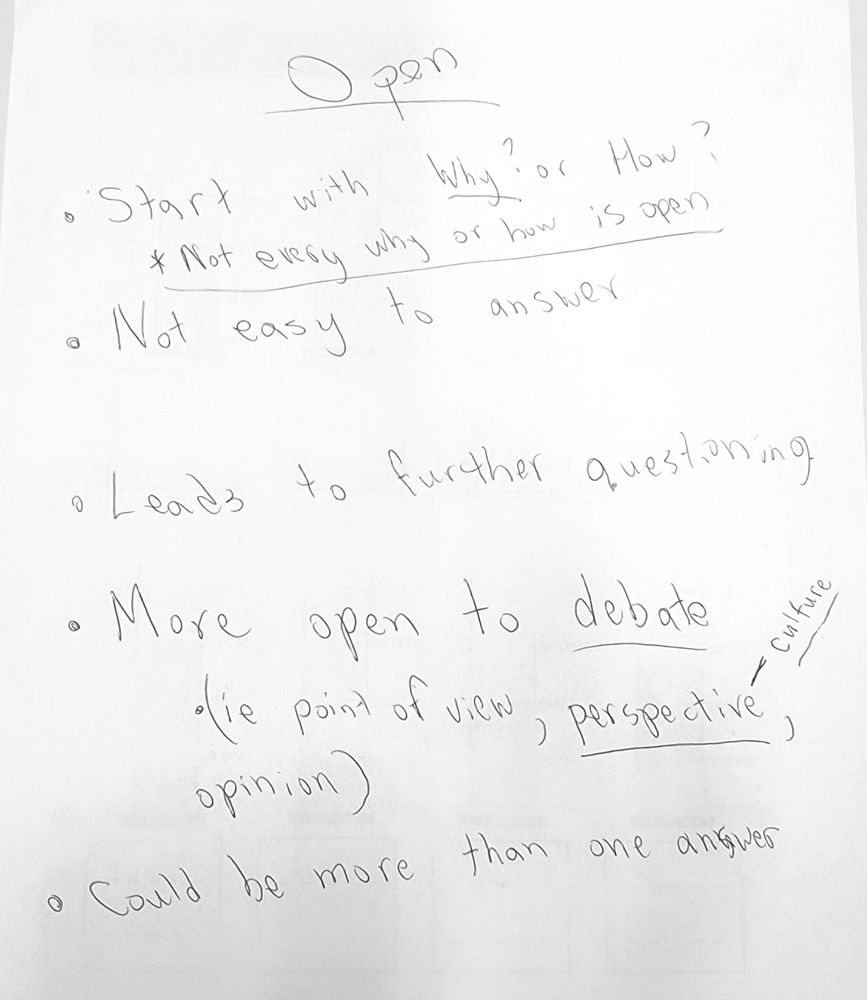 Open
• Start with Why? or How?
* Not every why or how is open
• Not easy to answer
• Leads to further questioning
• More open to debate
•(ie point of view, perspective, - culture
opinion)
• Could be more than one answer